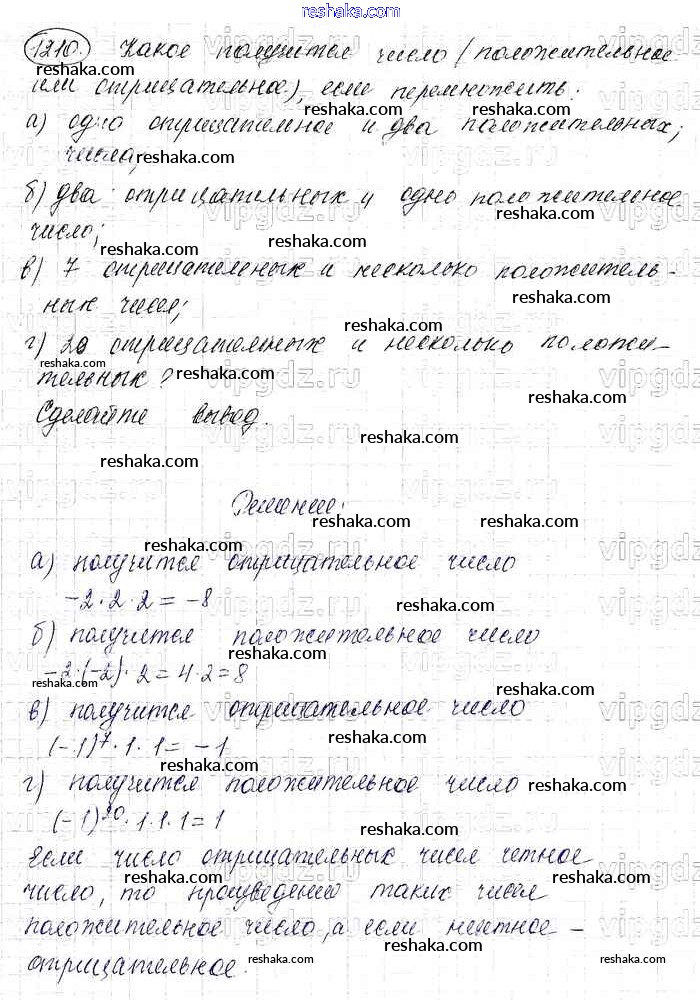 reshaka.com
1210. Какое получится число (положительное
reshaka.com reshaka.com
или отрицательное), если перемножить:
reshaka.com reshaka.com
vipgdz.ru vipgdz.ru
а) одно отрицательное и два положительных
числа; reshaka.com reshaka.com
б) два отрицательных и одно положительное
vipgdz.ru vipgdz.ru
число; reshaka.com reshaka.com
в) 7 отрицательных и несколько положитель-
ных чисел; reshaka.com reshaka.com
г) 20 отрицательных и несколько положи-
reshaka.com reshaka.com
тельных? reshaka.com vipgdz.ru
Сделайте вывод.
reshaka.com reshaka.com
reshaka.com reshaka.com
Решение:
reshaka.com reshaka.com
reshaka.com vipgdz
а) получится отрицательное число
-2·2·2=-8 reshaka.com
б) получится положительное число
reshaka.com
-2·(-2)·2=4·2=8
reshaka.com reshaka.com
в) получится отрицательное число
(-1)⁷·1·1=-1
reshaka.com reshaka.com
г) получится положительное число reshaka.com
(-1)²⁰·1·1·1=1 reshaka.com
Если число отрицательных чисел четное
reshaka.com reshaka.com
число, то произведение таких чисел
положительное число, а если нечетное -
reshaka.com
отрицательное. reshaka.com reshaka.com reshaka.com